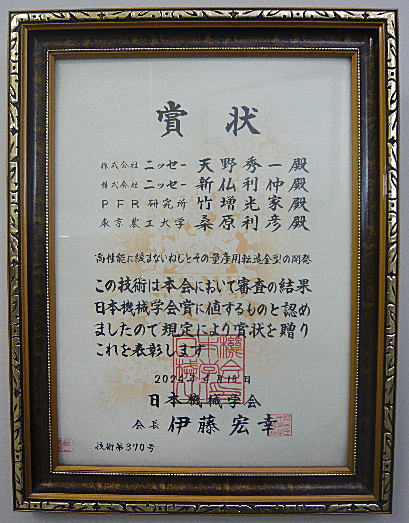 賞状
株式会社 ニッセー 天野秀一殿
株式会社 ニッセー 新仏利仲殿
PFR研究所 竹増光家殿
東京農工大学 桑原利彦殿
高性能に緩まないねじとその量産用転造金型の開発
この技術は本会において審査の結果
日本機械学会賞に値するものと認め
ましたので規定により賞状を贈り
これを表彰します
2024年4月18日
日本機械学会
会長 伊藤宏幸
技術第370号